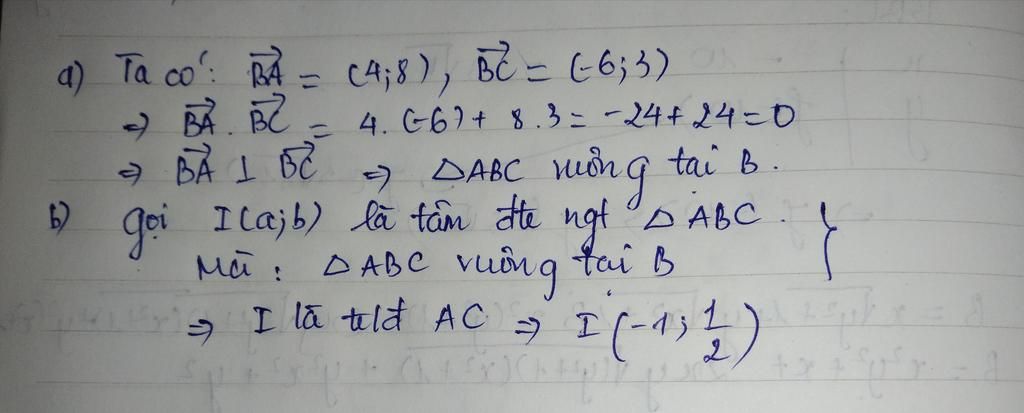 a) Ta có: BA→ = (4;8), BC→ = (-6;3)
=> BA→. BC→ = 4. (-6) + 8.3 = -24 + 24 = 0
=> BA→ ⊥ BC→ => △ABC vuông tại B.
b) gọi I(a;b) là tâm đtr ngt △ABC. }
Mà: △ABC vuông tại B
=> I là trđ AC => I(-1; 1/2)